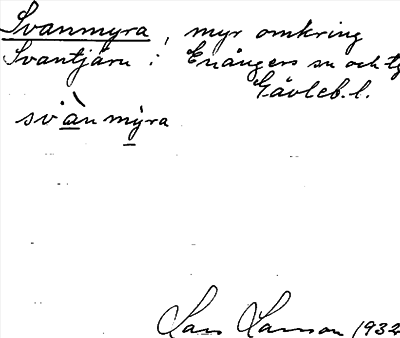 Svanmyra, myr omkring
Svantjärn i Enångers sn och
Gävleb. l.
svànmýra
Lars Larsson 1932